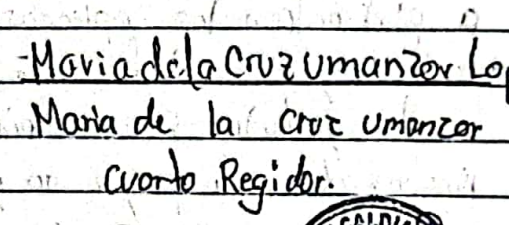 Maria de la Cruz Umanzor Lo
Maria de la Cruz Umanzor
Cuarto Regidor.